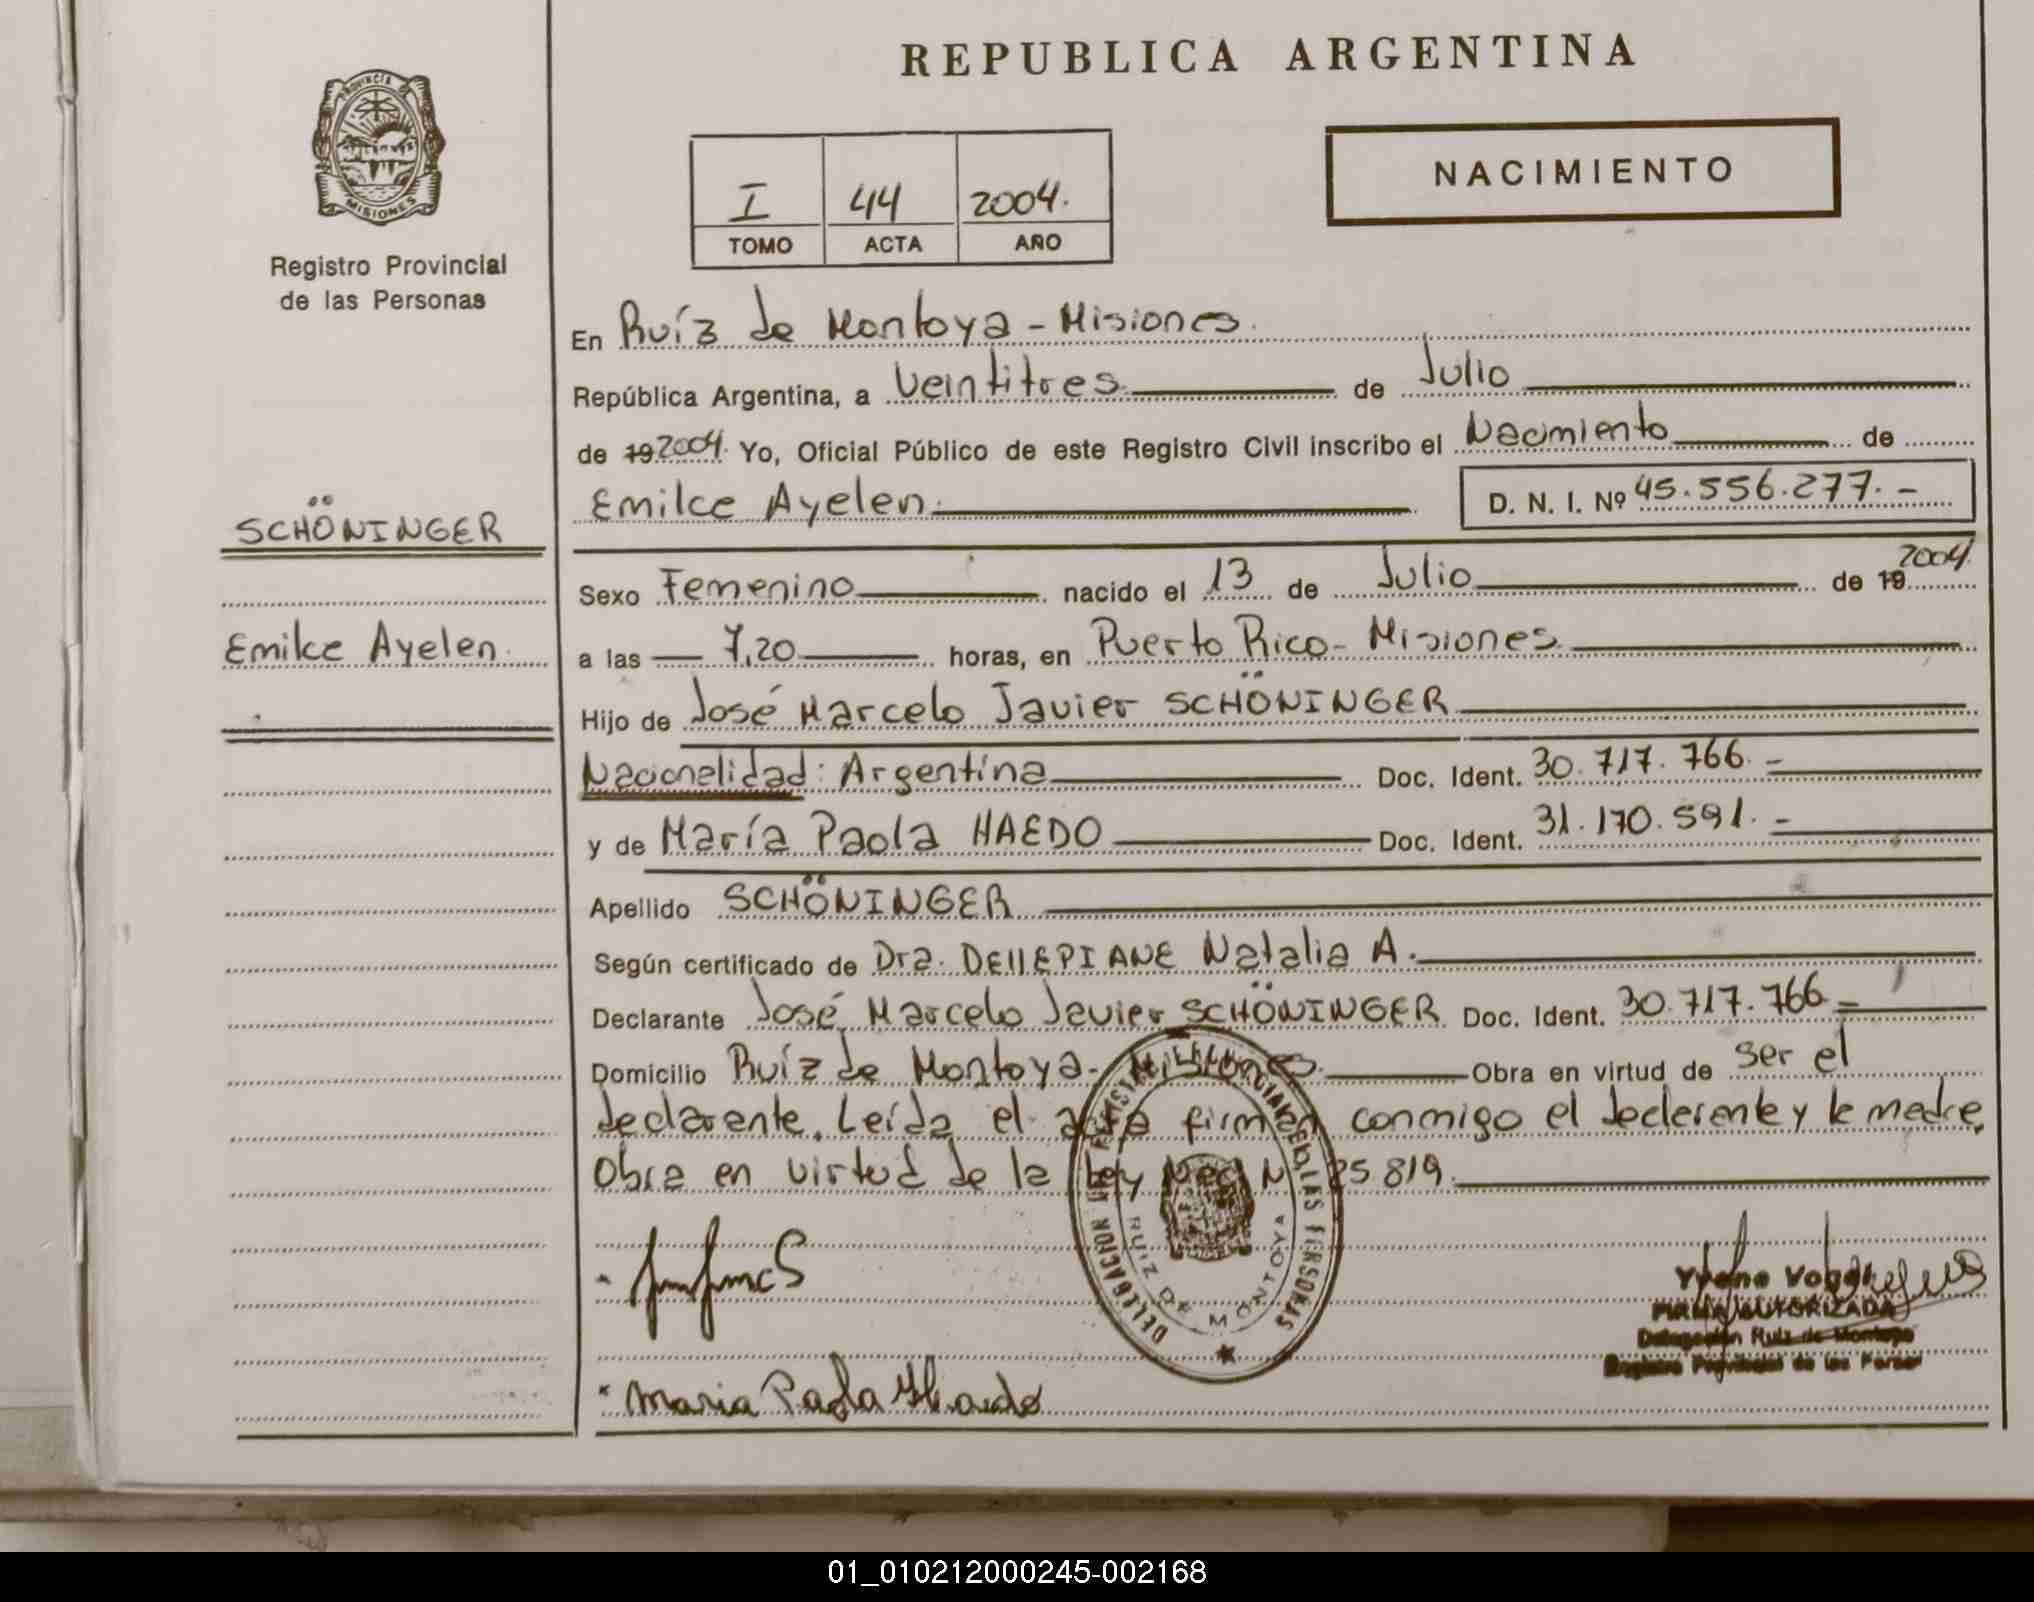 PROVINCIA
MISIONES
Registro Provincial
de las Personas
SCHÖNINGER
Emilce Ayelen
REPUBLICA ARGENTINA
I 44 2004.
TOMO ACTA AÑO
NACIMIENTO
En Ruíz de Montoya - Misiones.
República Argentina, a Veintitres de Julio
de 19 2004. Yo, Oficial Público de este Registro Civil inscribo el Nacimiento de
Emilce Ayelen. D. N. I. Nº 45.556.277.-
Sexo Femenino nacido el 13 de Julio de 19 2004.
a las 7,20 horas, en Puerto Rico - Misiones
Hijo de José Marcelo Javier SCHÖNINGER
Nacionalidad: Argentina Doc. Ident. 30.717.766.-
y de María Paola HAEDO Doc. Ident. 31.170.591.-
Apellido SCHÖNINGER
Según certificado de Dra. DEllEPIANE Natalia A.
Declarante José Marcelo Javier SCHÖNINGER Doc. Ident. 30.717.766-
Domicilio Ruíz de Montoya - Misiones Obra en virtud de ser el
declarente. Leída el acta firman conmigo el declarente y la madre.
Obra en virtud de la Ley Nac. N 25.819.
DELEGACION REGISTRO PROVINCIAL DE LAS PERSONAS
RUIZ DE MONTOYA
Yvone Vogel
FIRMA AUTORIZADA
Delegación Ruiz de Montoya
Registro Provincial de las Person
Maria Paola Haedo
01_010212000245-002168